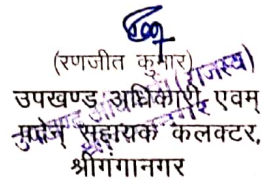 (रणजीत कुमार)
उपखण्ड अधिकारी एवम्
सहायक कलक्टर,
श्रीगंगानगर